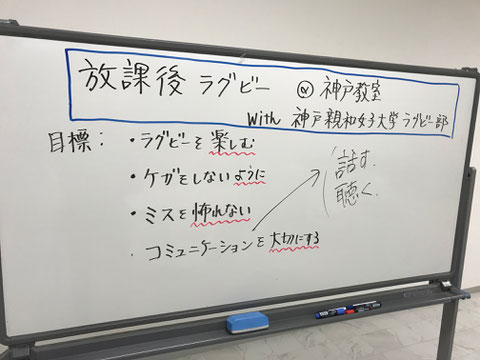 放課後 ラグビー @ 神戸教室
With 神戸親和女子大学 ラグビー部
目標： ・ラグビーを楽しむ
・ケガをしないように
・ミスを怖れない
・コミュニケーションを大切にする
話す.
聴く.